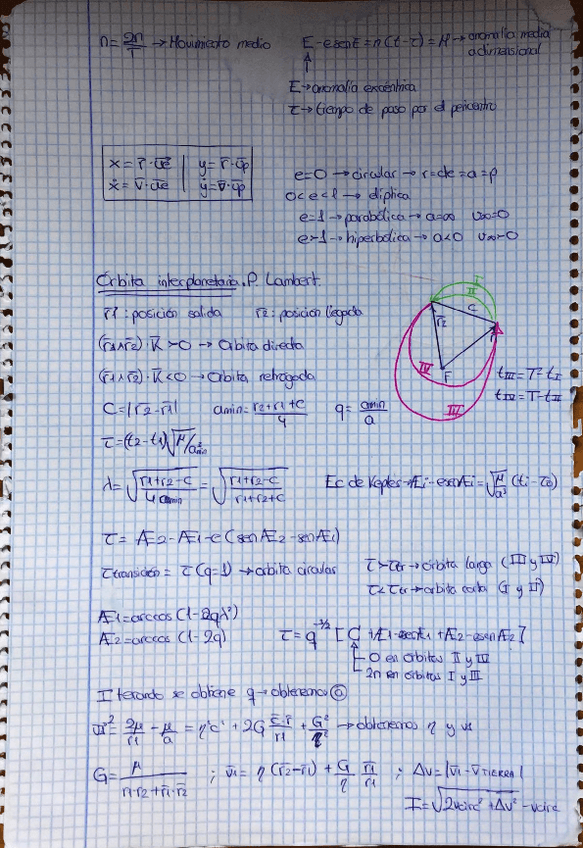 n = 2π/T → Movimiento medio   E - e senE = n(t-τ) = M → anomalía media adimensional
E → anomalía excéntrica
τ → tiempo de paso por el pericentro
x = r̄·ūe | y = r̄·ūp
ẋ = v̄·ūe | ẏ = v̄·ūp
e=0 → circular → r = cte = a = p
0<e<1 → elíptica
e=1 → parabólica → a=∞ v∞=0
e>1 → hiperbólica → a<0 v∞>0
Órbita interplanetaria. P. Lambert.
r̄1: posición salida   r̄2: posición llegada
(r̄1∧r̄2)·K̄>0 → Órbita directa
(r̄1∧r̄2)·K̄<0 → Órbita retrógada
I
II
C
r2
F
IV
III
tIII = T-tI
tIV = T-tII
C = |r̄2-r̄1|   amin = (r2+r1+C)/4   q = amin/a
τ = (t2-t1)√(μ/a³min)
λ = √((r1+r2-C)/(4amin)) = √((r1+r2-C)/(r1+r2+C))   Ec de Kepler → Æi - esenÆi = √(μ/a³) (ti-τ0)
τ = Æ2-Æ1-e(senÆ2-senÆ1)
τtransición = τ(q=1) → órbita circular   τ>τtr → órbita larga (III y IV)
τ<τtr → órbita corta (I y II)
Æ1 = arccos(1-2qλ²)
Æ2 = arccos(1-2q)   τ = q^(-3/2) [C
0 en órbitas II y IV
2π en órbitas I y III
Iterando se obtiene q → obtenemos a
v1² = 2μ/r1 - μ/a = η²c² + 2G c̄·r̄/r1 + G²/η² → obtenemos η y
G = μ/(r1·r2+r̄1·r̄2) ; v̄1 = η(r̄2-r̄1) + G/η r̄1/r1 ; Δv = |v̄1-v̄TIERRA|
I = √(2vcirc²+Δv²) - vcirc